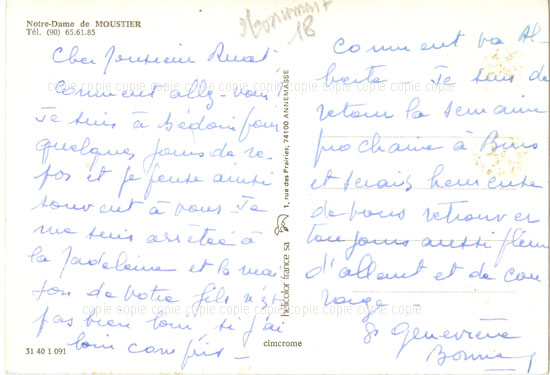 Notre-Dame de MOUSTIER
Tél. (90) 65.61.85
Monument
18
Cher Monsieur
Comment allez-vous
Je suis à Bedoin pour
quelques jours de re-
pos et je pense aussi
souvent à vous Je
me suis arrêtée à
la Madeleine et la mai
son de votre fils n'est
pas bien loin si j'ai
bien compris –
Comment va Al-
berte Je suis de
retour la semaine
prochaine à
et serais heureuse
de vous retrouver
toujours aussi plein
d'allant et de cou
rage –
Geneviève
copie copie copie copie copie copie copie
1, rue des Prairies, 74100 ANNEMASSE
helicolor france sa
cimcrome
31 40 1 091